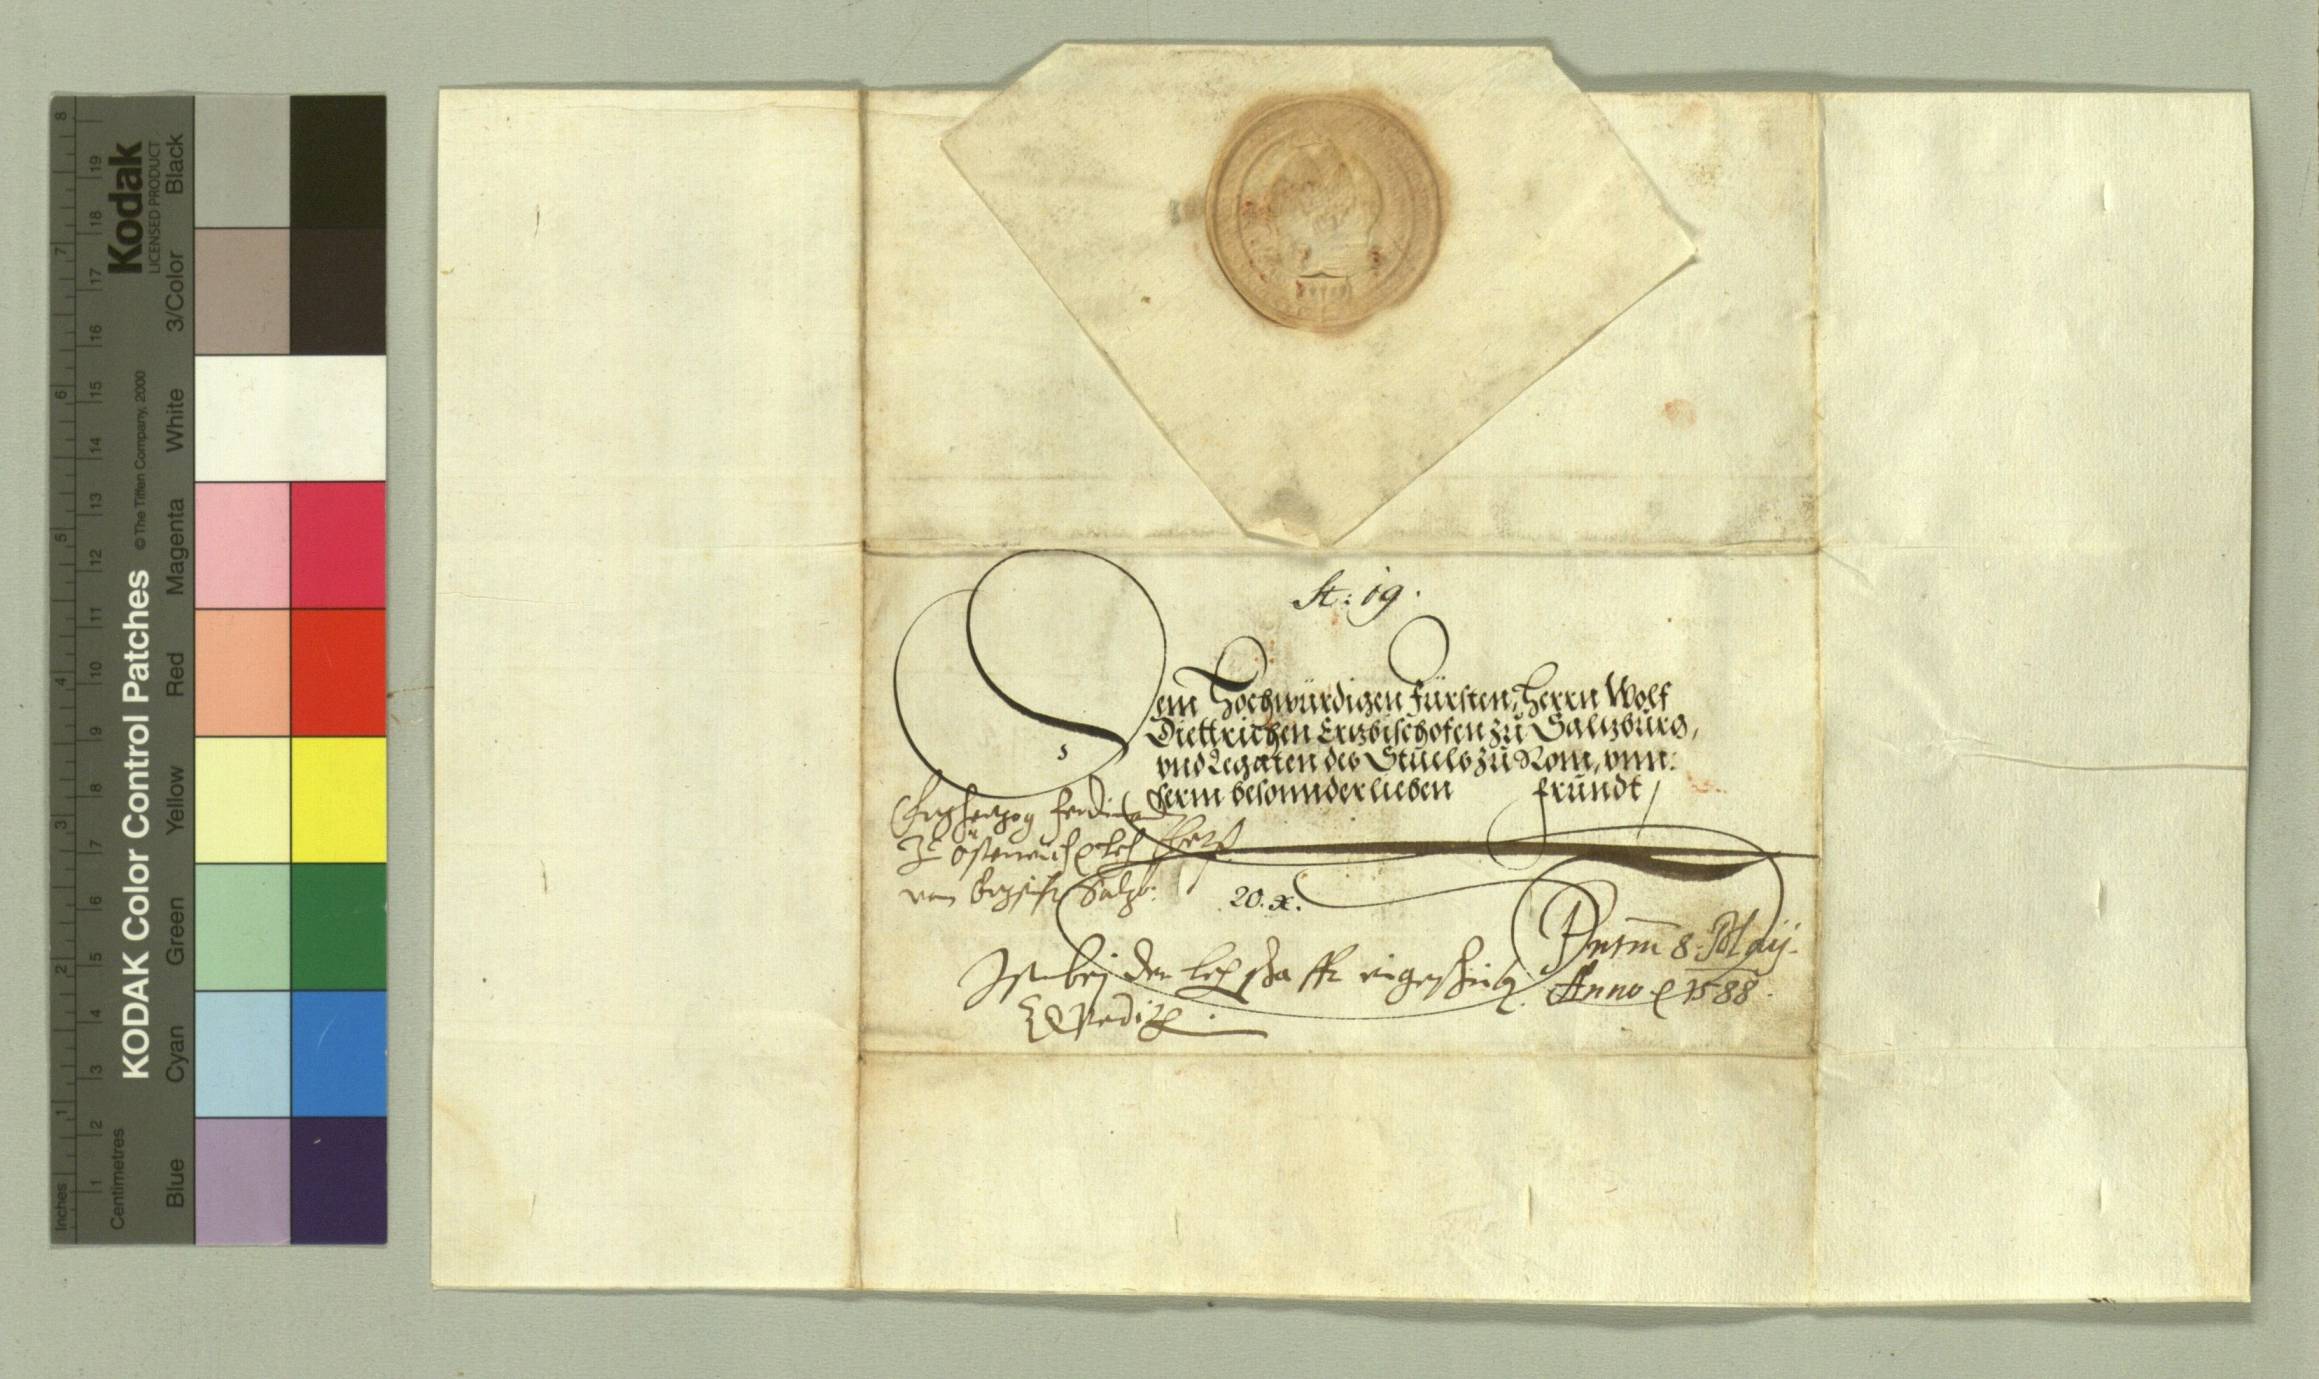 KODAK Color Control Patches
© The Tiffen Company, 2000
Kodak
LICENSED PRODUCT
Inches
1 2 3 4 5 6 7 8
Centimetres
1 2 3 4 5 6 7 8 9 10 11 12 13 14 15 16 17 18 19
Blue Cyan Green Yellow Red Magenta White 3/Color Black
St: 19.
Dem Hochwürdigen Fürsten, Herrn Wolf
Diettrichen Ertzbischofen zu Saltzburg,
vnd Legaten des Stuels zu Rom, vnn:
serm besonnder lieben frundt
Ertzhertzog Ferdinand
Zu Österreich
vom Ertzstifft Saltzb:
20. x.
Pntm 8. Maij.
Anno 1588.
Ist bej der